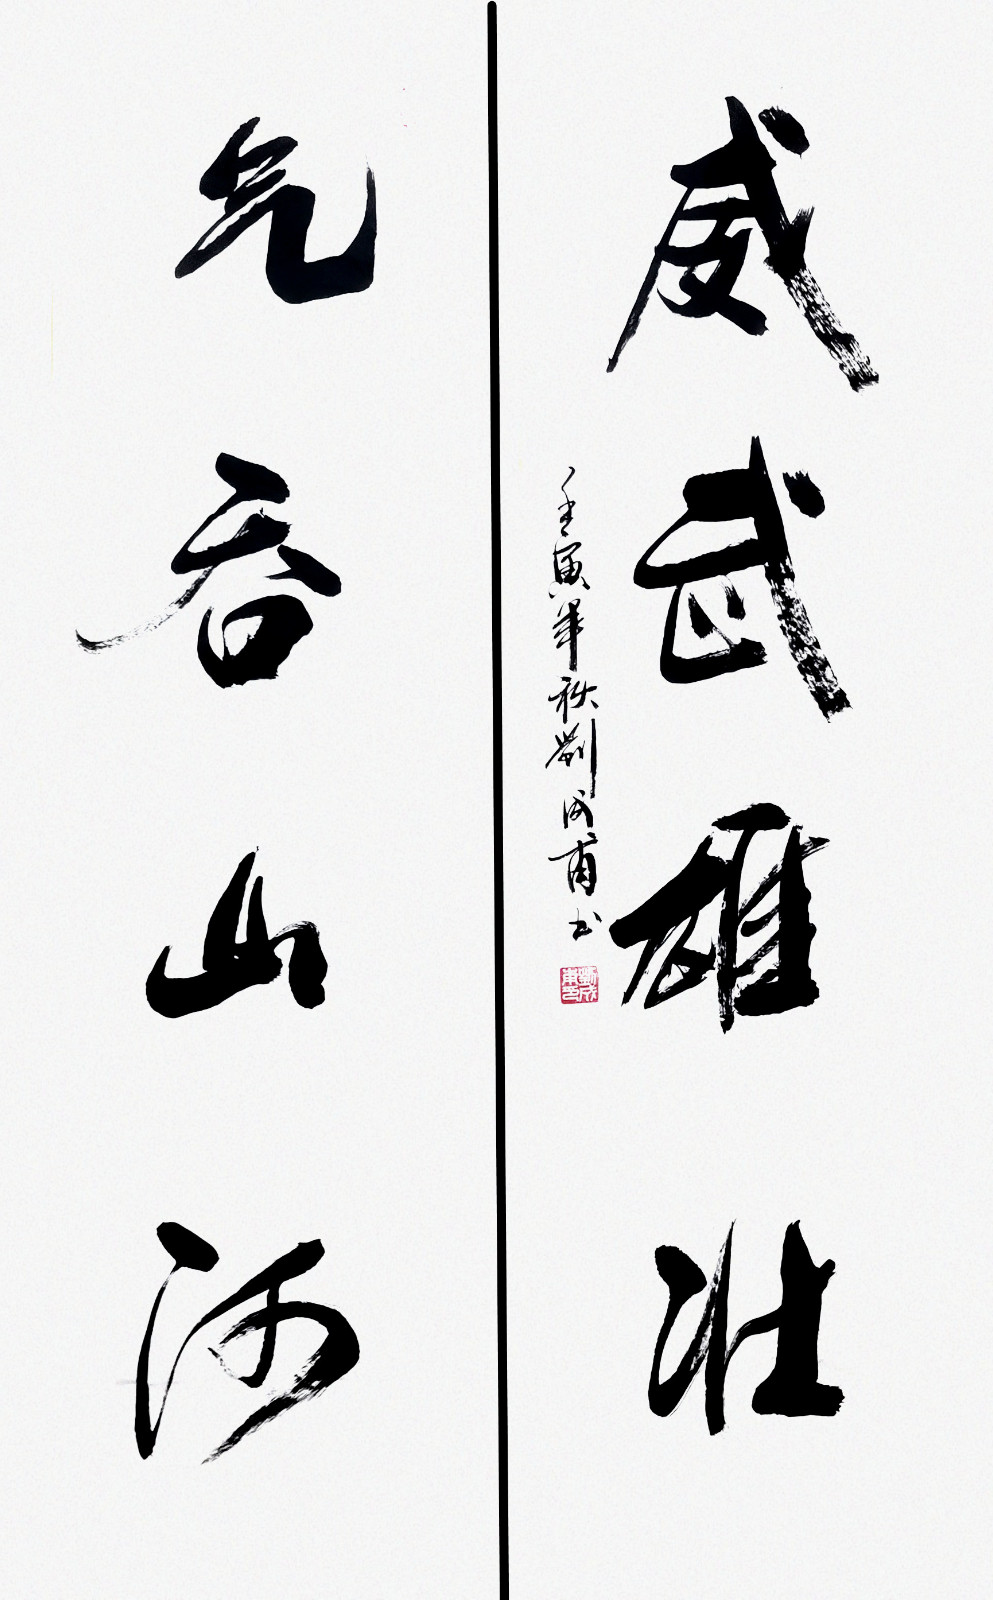 威武雄壮
壬寅年秋劉成甫书
气吞山河